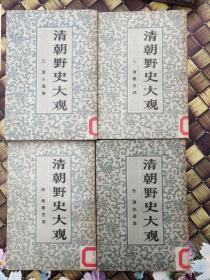 清朝野史大观
三 清人逸事
清朝野史大观
二 清朝史料
清朝野史大观
四 清朝艺苑
清朝野史大观
五 清代述异